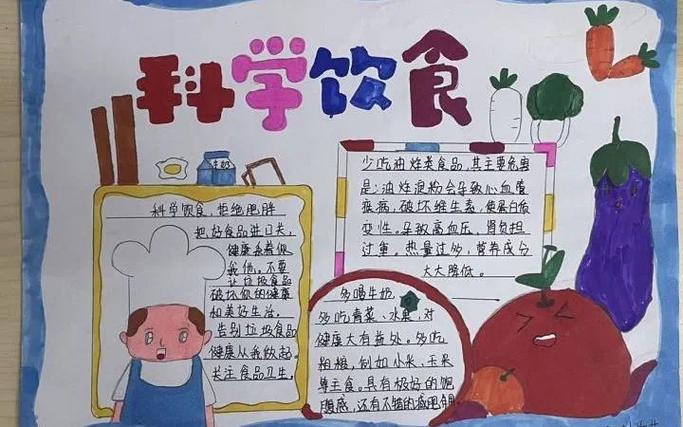 科学饮食
牛奶
科学饮食,拒绝肥胖
把好食品进口关,
健康亲着你
我他。不要
让垃圾食品
破坏你的健康
和美好生活,
告别垃圾食品
健康从我做起。
关注食品卫生,
少吃油炸类食品,其主要危害
是:油炸淀粉会导致心血管
疾病,破坏维生素,使蛋白质
变性。导致高血压,肾负担
过重。热量过多,营养成分
大大降低。
多喝牛奶
多吃青菜、水果,对
健康大有益处。多吃
粗粮,例如小米,玉米
等主食。具有极好的饱
腹感,还有不错的减肥